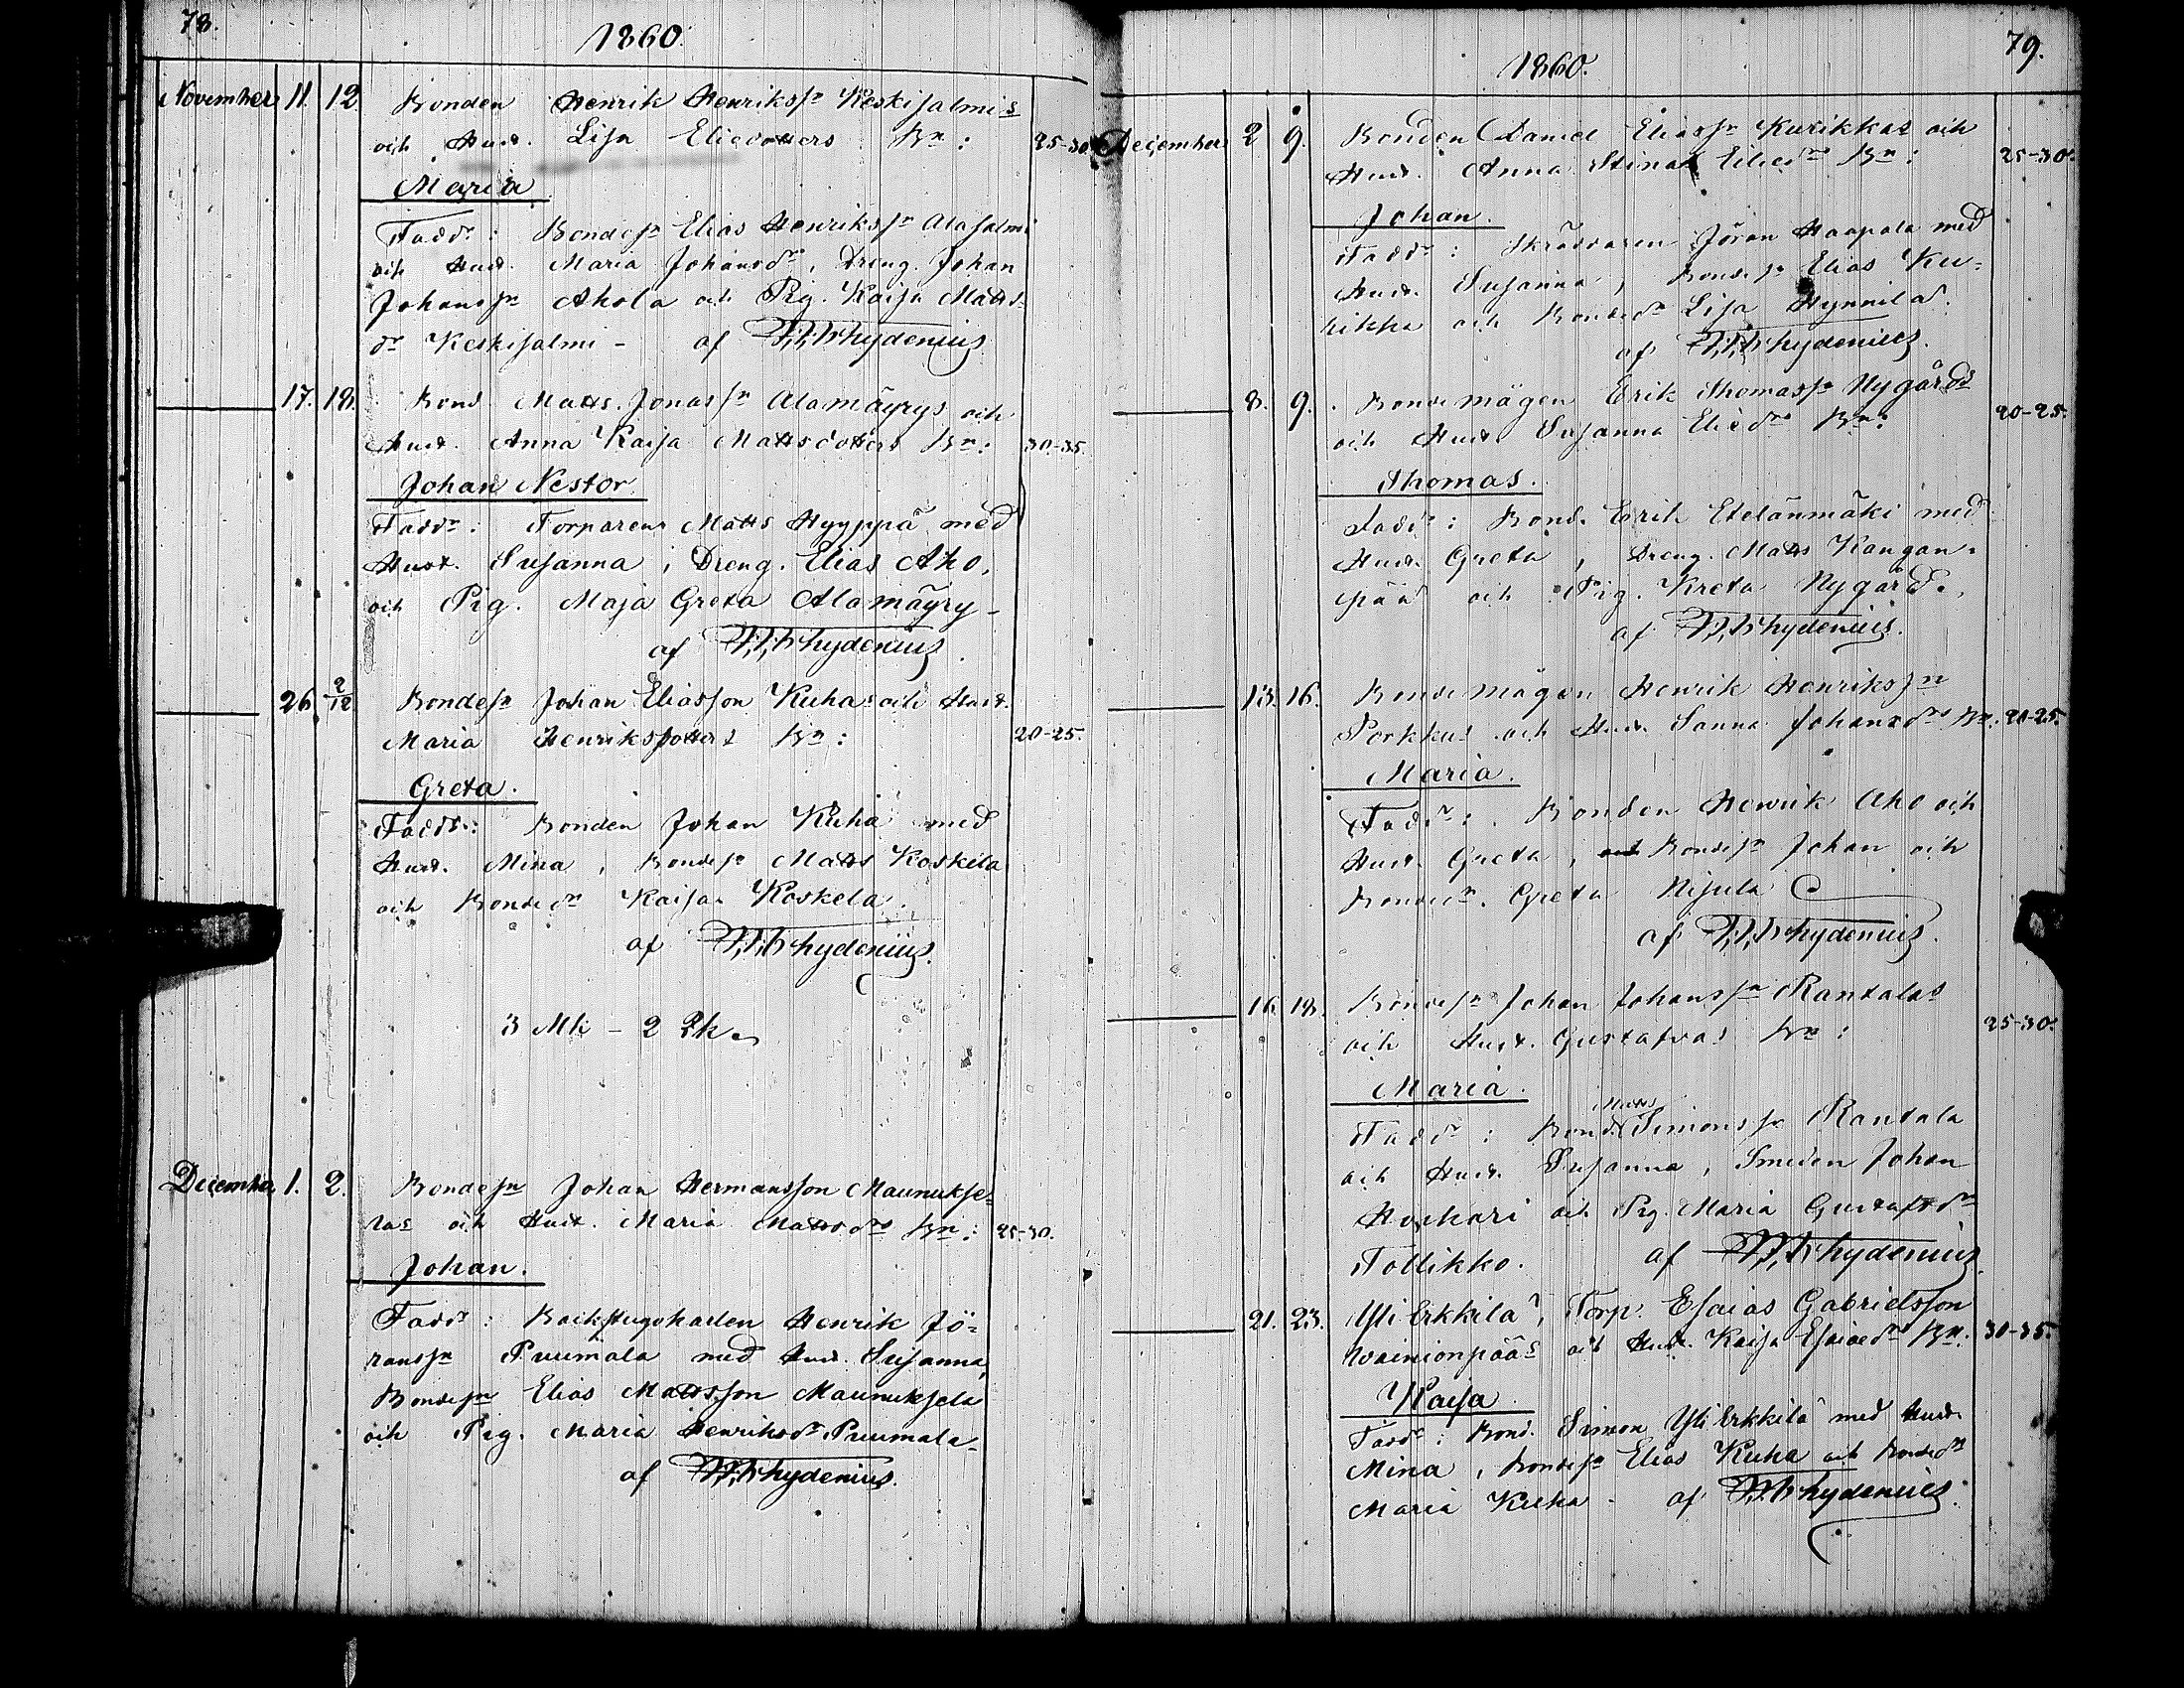 78.
1860.
November 11. 12. Bonden Henrik Henrikssn Keskisalmis
och Hust. Lisa Eliedotters Bn: 25-30
Maria
Faddr: Bondesn Elias Henrikssn Alasalmi
och Hust. Maria Johansdr, Dreng. Johan
Johanssn Ahola och Pig. Kaisa Matts-
dr Keskisalmi - af W.W. Chydenius
17. 18. Bond. Matts Jonassn Alamäyrys och
Hust. Anna Kaisa Mattsdotters Bn: 30-35.
Johan Nestor.
Faddr: Torparen Matts Hyyppä med
Hust. Susanna, Dreng. Elias Aho,
och Pig. Maja Greta Alamäyry -
af W.W. Chydenius
26. 2/12 Bondesn Johan Eliasson Kuhas och Hust.
Maria Henriksdotters Bn: 20-25.
Greta.
Faddr: Bonden Johan Kuha med
Hust. Mina, Bondesn Matts Koskela
och Bondedr Kaisa Koskela.
af W.W. Chydenius.
3 Mk - 2 Qk
December 1. 2. Bondesn Johan Hermansson Maunukse-
las och Hust. Maria Mattsdrs Bn: 25-30.
Johan.
Faddr: Backstugokarlen Henrik Jö-
ranssn Puumala med Hust. Susanna,
Bondesn Elias Mattsson Maunuksela
och Pig. Maria Henriksdr Puumala -
af W.W. Chydenius.
79.
1860.
December 2 9. Bonden Daniel Eliassn Kurikkas och
Hust. Anna Stinas Eliedrs Bn: 25-30.
Johan.
Faddr: Skräddaren Jöran Haapala med
Hust. Susanna, Bondesn Elias Ku-
rikka och Bondedr Lisa Hynnilä.
af W.W. Chydenius.
8. 9. Bondemågen Erik Thomassn Nygårds
och Hust. Susanna Eliedrs Bn: 20-25.
Thomas.
Faddr: Bond. Erik Etelänmäki med
Hust. Greta, Dreng. Matts Kangan-
pää och Pig. Kreta Nygård.
af W.W. Chydenius.
13. 16. Bondemågen Henrik Henrikssn
Porkkas och Hust. Sanna Johansdrs Bn. 20-25.
Maria.
Faddr: Bonden Henrik Aho och
Hust. Greta, Bondesn Johan och
Bondedr. Greta Nisula
af W.W. Chydenius.
16. 18. Bondesn Johan Johanssn Rantalas
och Hust. Gustafvas Bn: 25-30.
Maria.
Faddr: Bond. Matts Simonssn Rantala
och Hust. Susanna, Smeden Johan
Honkari och Pig. Maria Gustafsdr
Tollikko. af W.W. Chydenius.
21. 23. Yli Erkkilä, Torp. Esaias Gabrielsson
Wainionpääs och Hust. Kaisa Esaiedrs Bn. 30-35.
Kaisa
Faddr: Bond. Simon Yli Erkkilä med Hust.
Mina, Bondesn Elias Kuha och Bondedr
Maria Kuha - af W.W. Chydenius.